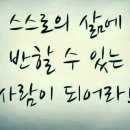 스스로의 삶에
반할 수 있는
사람이 되어라!